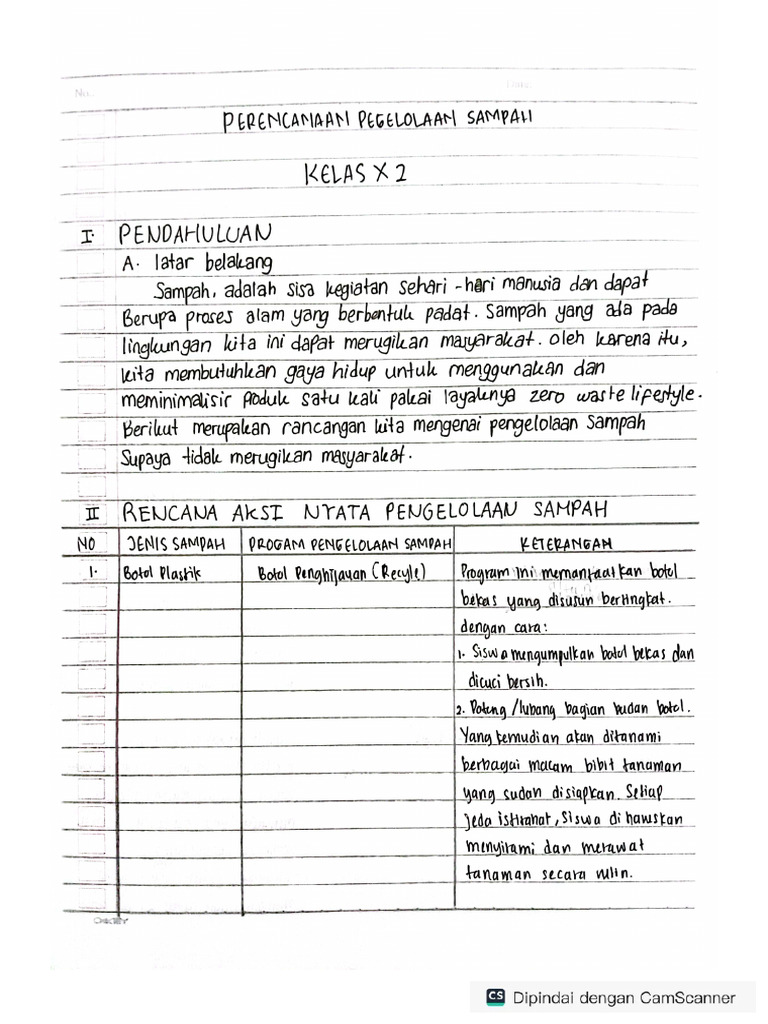 No.
Date:
PERENCANAAN PEGELOLAAN SAMPAH
KELAS X 2
I. PENDAHULUAN
A. latar belakang
Sampah, adalah sisa kegiatan sehari-hari manusia dan dapat
Berupa proses alam yang berbentuk padat. Sampah yang ada pada
lingkungan kita ini dapat merugikan masyarakat. oleh karena itu,
kita membutuhkan gaya hidup untuk menggunakan dan
meminimalisir produk satu kali pakai layaknya zero waste lifestyle.
Berikut merupakan rancangan kita mengenai pengelolaan Sampah
Supaya tidak merugikan masyarakat.
II RENCANA AKSI NYATA PENGELOLAAN SAMPAH
NO JENIS SAMPAH PROGAM PENGELOLAAN SAMPAH KETERANGAN
1. Botol Plastik Botol Penghijauan (Recyle) Program ini memanfaatkan botol
bekas yang disusun bertingkat.
dengan cara:
1. Siswa mengumpulkan botol bekas dan
dicuci bersih.
2. Potong /lubang bagian badan botol.
Yang kemudian akan ditanami
berbagai macam bibit tanaman
yang sudah disiapkan. Setiap
jeda istirahat, Siswa di haruskan
menyirami dan merawat
tanaman secara rutin.
CS Dipindai dengan CamScanner